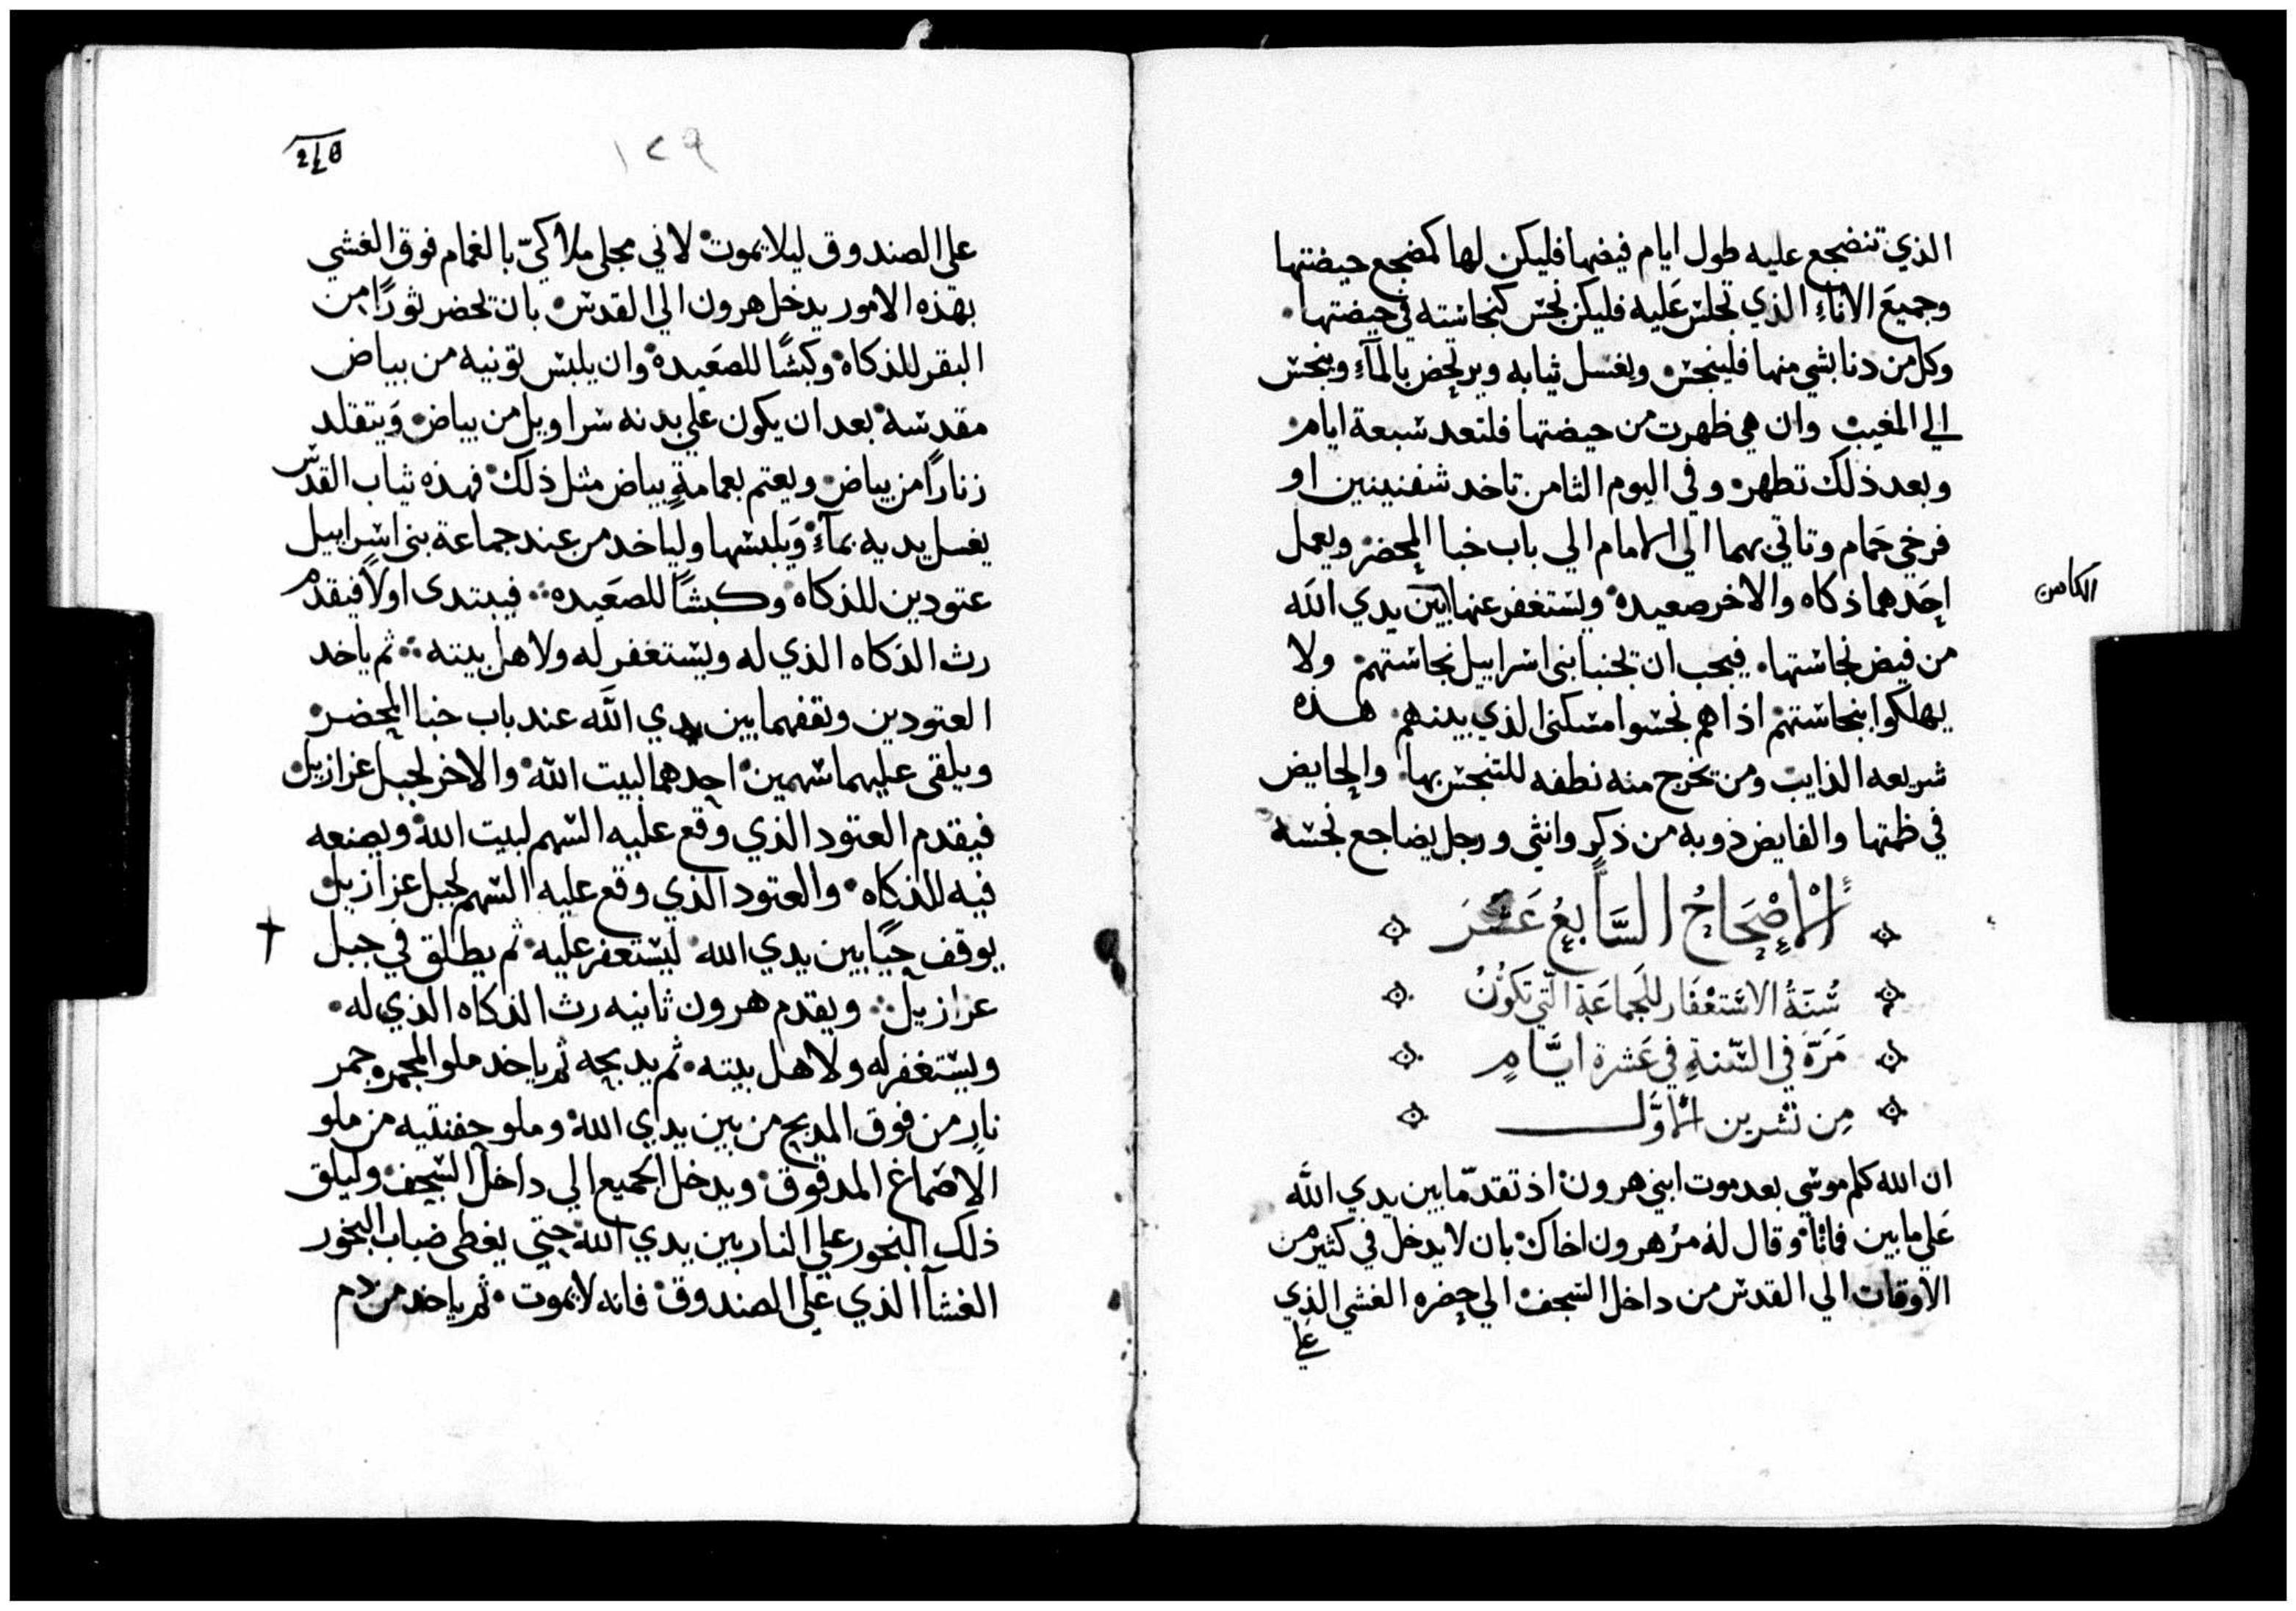 الذي تنضجع عليه طول ايام فيضها فليكن لها كمضجع حيضتها
وجميع الاناء الذي تجلس عليه فليكن نجس كنجاسته في حيضتها
وكل من دنا بشي منها فلينجس ويغسل ثيابه ويرتحض بالماء وينجس
الي المغيب وان هي ظهرت من حيضتها فلتعد سبعة ايام
وبعد ذلك تطهر وفي اليوم الثامن تاخد شفنينين او
فرخي حمام وتاتي بهما الي الامام الي باب خبا المحضر ويعمل
احدهما ذكاه والاخر صعيدة ويستغفر عنها بين يدي الله
الكاهن
من فيض نجاستها فيجب ان تجنبا بني اسراييل نجاستهم ولا
يهلكوا بنجاستهم اذا هم نجسوا مسكني الذي بينهم هذه
شريعه الذايب ومن تخرج منه نطفه للتنجس بها والحايض
في ظمتها والفايض ذوبه من ذكر وانثي ورجل يضاجع نجسه
الاصحاح السابع عشر
سنة الاستغفار للجماعة التي تكون
مرة في السنة في عشرة ايام
من تشرين الاول
ان الله كلم موسي بعد موت ابني هرون اذ تقدما بين يدي الله
علي مابين فماتا وقال له مر هرون اخاك بان لا يدخل في كثير من
الاوقات الي القدس من داخل السجف الي حضره الغشي الذي
علي
١٢٩
علي الصندوق ليلا يموت لاني مجلي ملاكي بالغمام فوق الغشي
بهذه الامور يدخل هرون الي القدس بان تحضر ثورا من
البقر للذكاه وكبشا للصعيدة وان يلبس تونيه من بياض
مقدسه بعد ان يكون علي بدنه سراويل من بياض ويتقلد
زنارا من بياض ويعتم بعمامة بياض مثل ذلك فهذه ثياب القدس
يغسل يديه بماء ويلبسها ولياخد من عند جماعة بني اسراييل
عتودين للذكاه وكبشا للصعيده فيبتدي اولا فيقدم
رث الذكاه الذي له ويستغفر له ولاهل بيته ثم ياخد
العتودين وتقفهما بين يدي الله عند باب خبا المحضر
ويلقي عليهما سهمين احدهما لبيت الله والاخر لجبل عزازيل
فيقدم العتود الذي وقع عليه السهم لبيت الله ويصنعه
فيه للذكاه والعتود الذي وقع عليه السهم لجبل عزازيل
يوقف حيا بين يدي الله ليستغفر عليه ثم يطلق في جبل
عزازيل ويقدم هرون ثانيه رث الذكاه الذي له
ويستغفر له ولاهل بيته ثم يدبحه ثم ياخد ملو المجمره جمر
نار من فوق المدبح من بين يدي الله وملو حفنتيه من ملو
الاصماغ المدقوق ويدخل الجميع الي داخل السجف وليلق
ذلك البخور علي النار بين يدي الله حتي يغطي ضباب البخور
الغشا الذي علي الصندوق فانه لا يموت ثم ياخد من دم